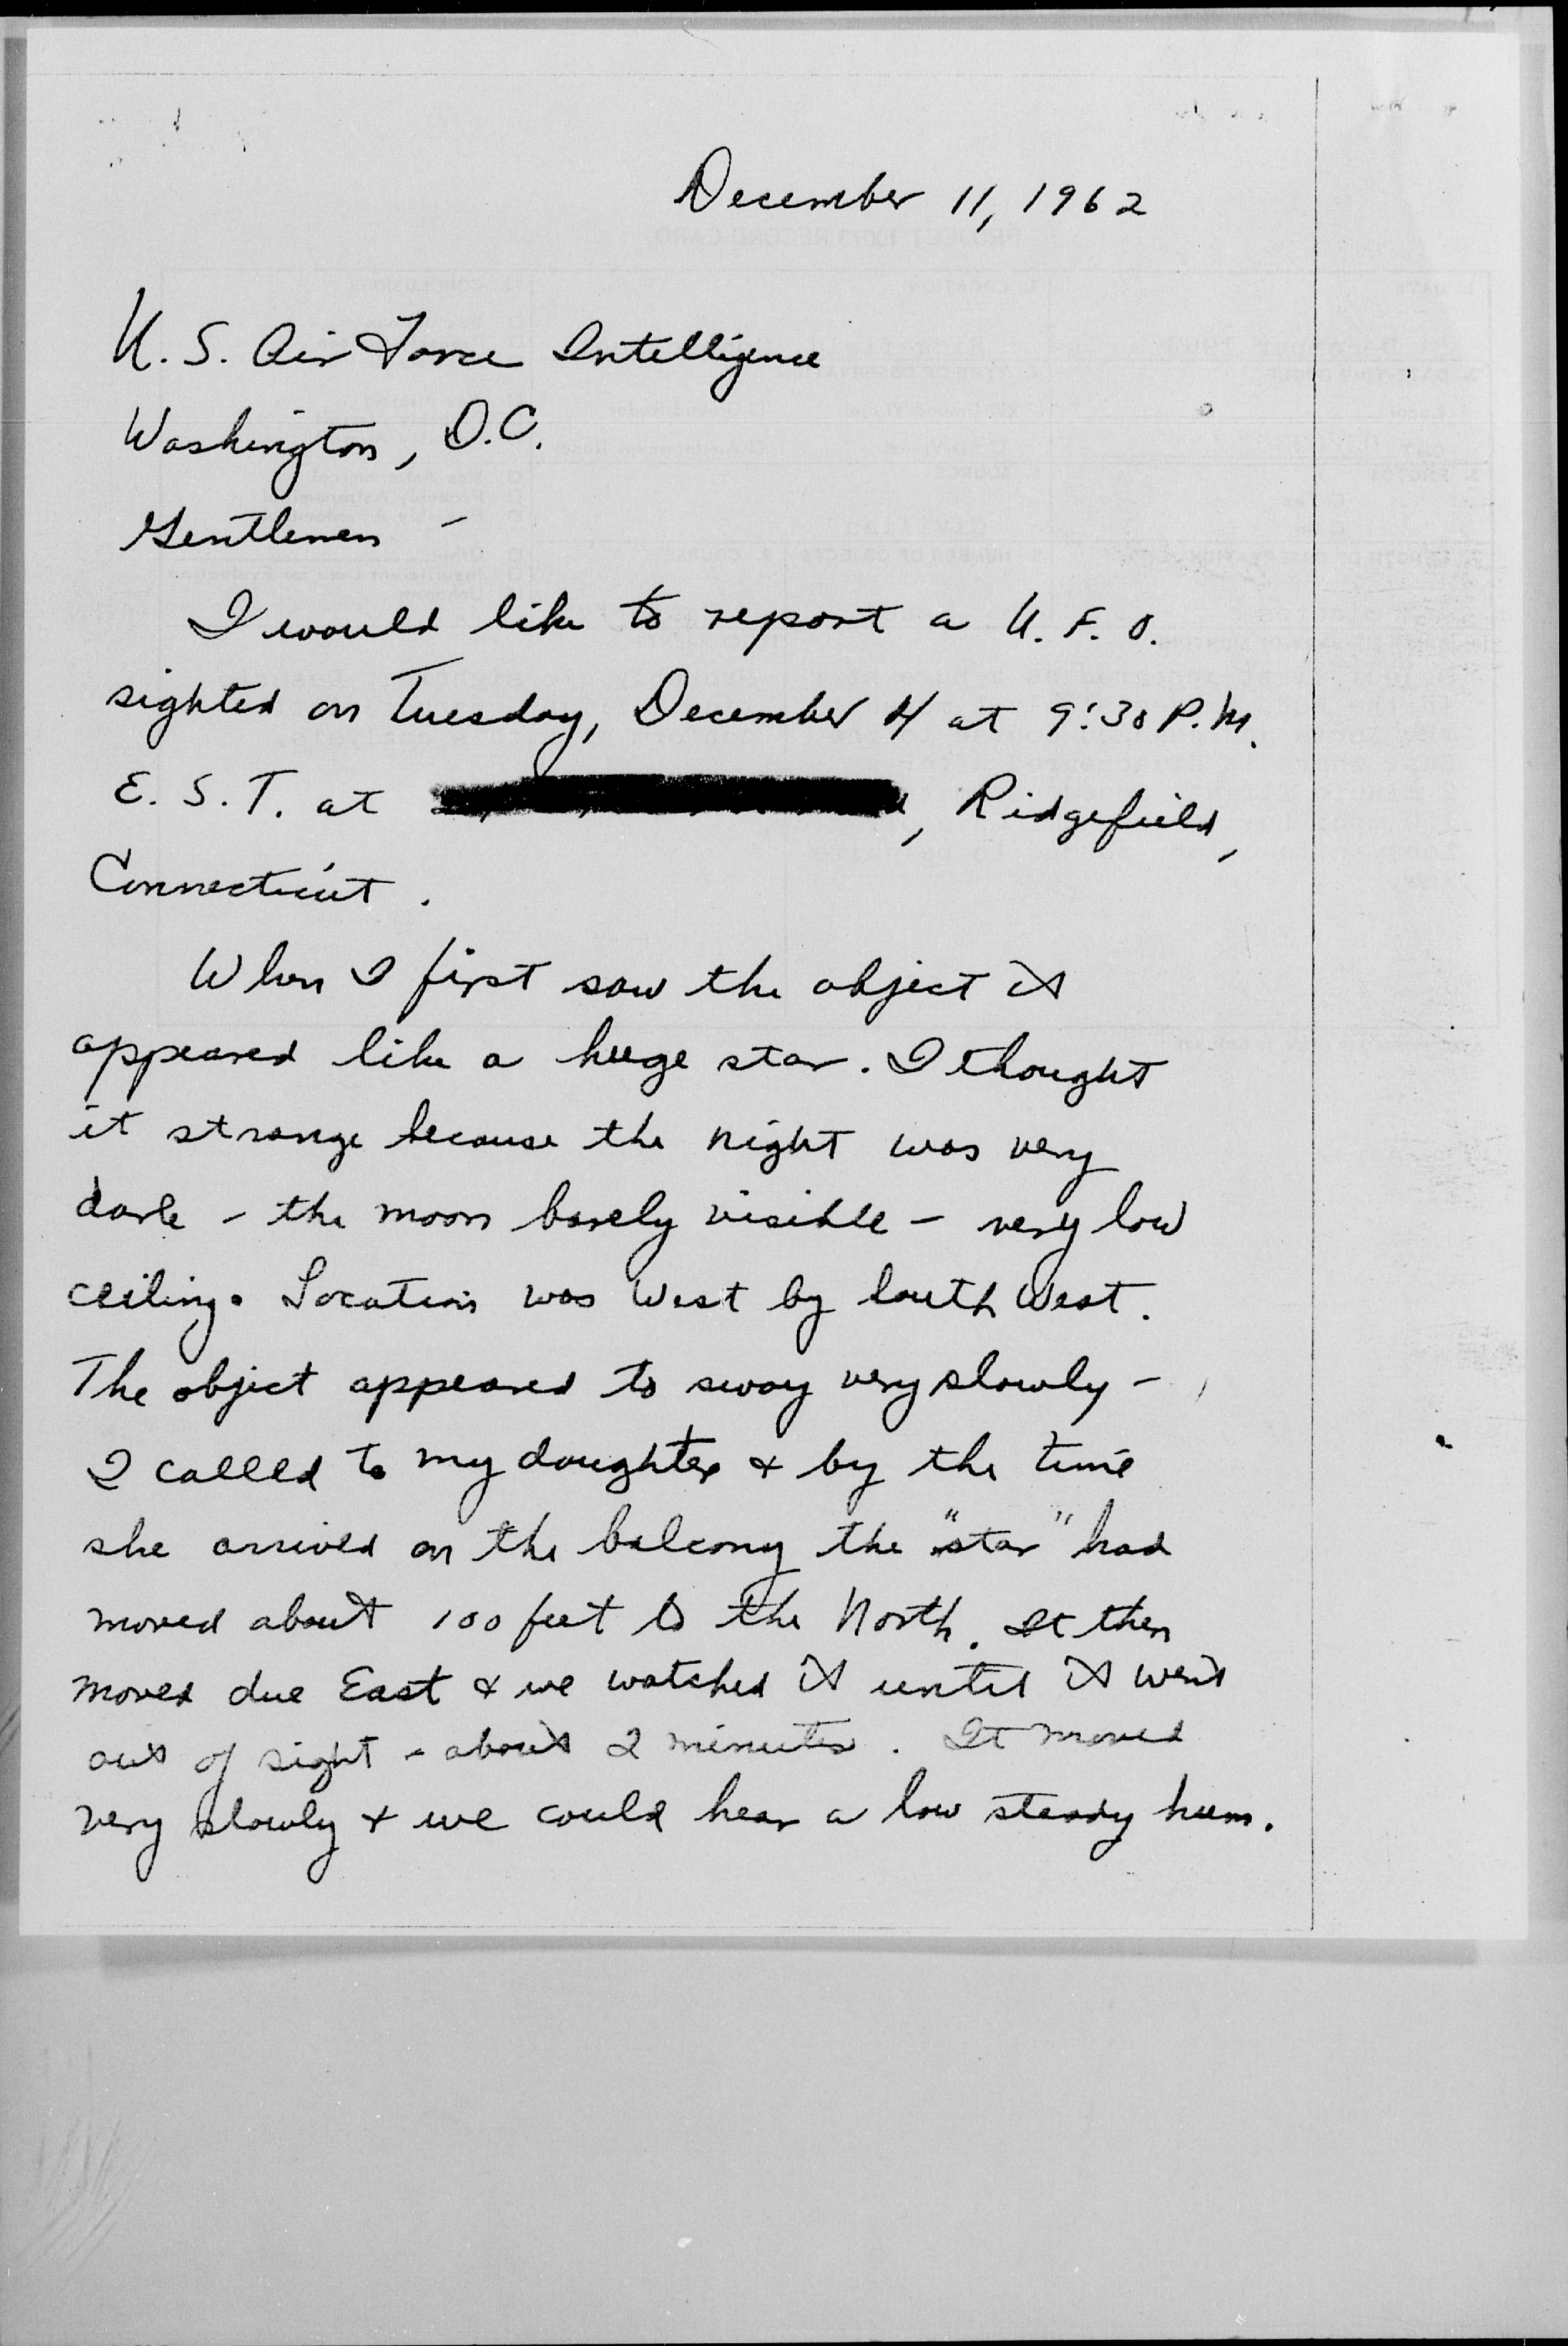 December 11, 1962
U. S. Air Force Intelligence
Washington, D.C.
Gentlemen -
I would like to report a U. F. O.
sighted on Tuesday, December 4 at 9:30 P.M.
E. S. T. at , Ridgefield,
Connecticut.
When I first saw the object it
appeared like a huge star. I thought
it strange because the night was very
dark - the moon barely visible - very low
ceiling. Location was West by South West.
The object appeared to sway very slowly -
I called to my daughter & by the time
she arrived on the balcony the "star" had
moved about 100 feet to the North. It then
moved due East & we watched it until it went
out of sight - about 2 minutes. It moved
very slowly & we could hear a low steady hum.